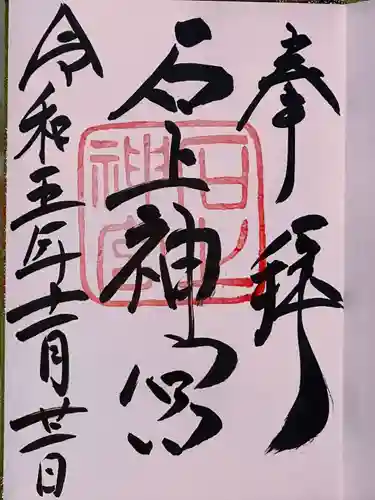 奉拝
石上神宮
令和五年十一月廿二日
石上
神宮